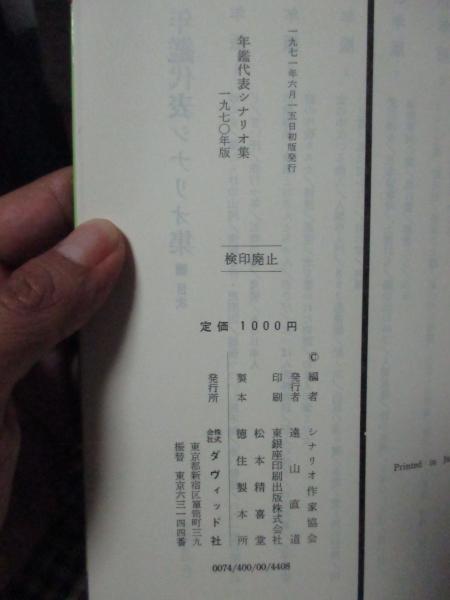 一九七一年六月一五日初版発行
年鑑代表シナリオ集
一九七〇年版
検印廃止
定価 1000円
© 編者 シナリオ作家協会
発行者 遠山直道
印刷 東銀座印刷出版株式会社
松本精喜堂
製本 徳住製本所
発行所 株式会社 ダヴィッド社
東京都新宿区箪笥町三九
振替 東京六三一四四番
0074/400/00/4408
Printed in
年鑑代表シナリオ集